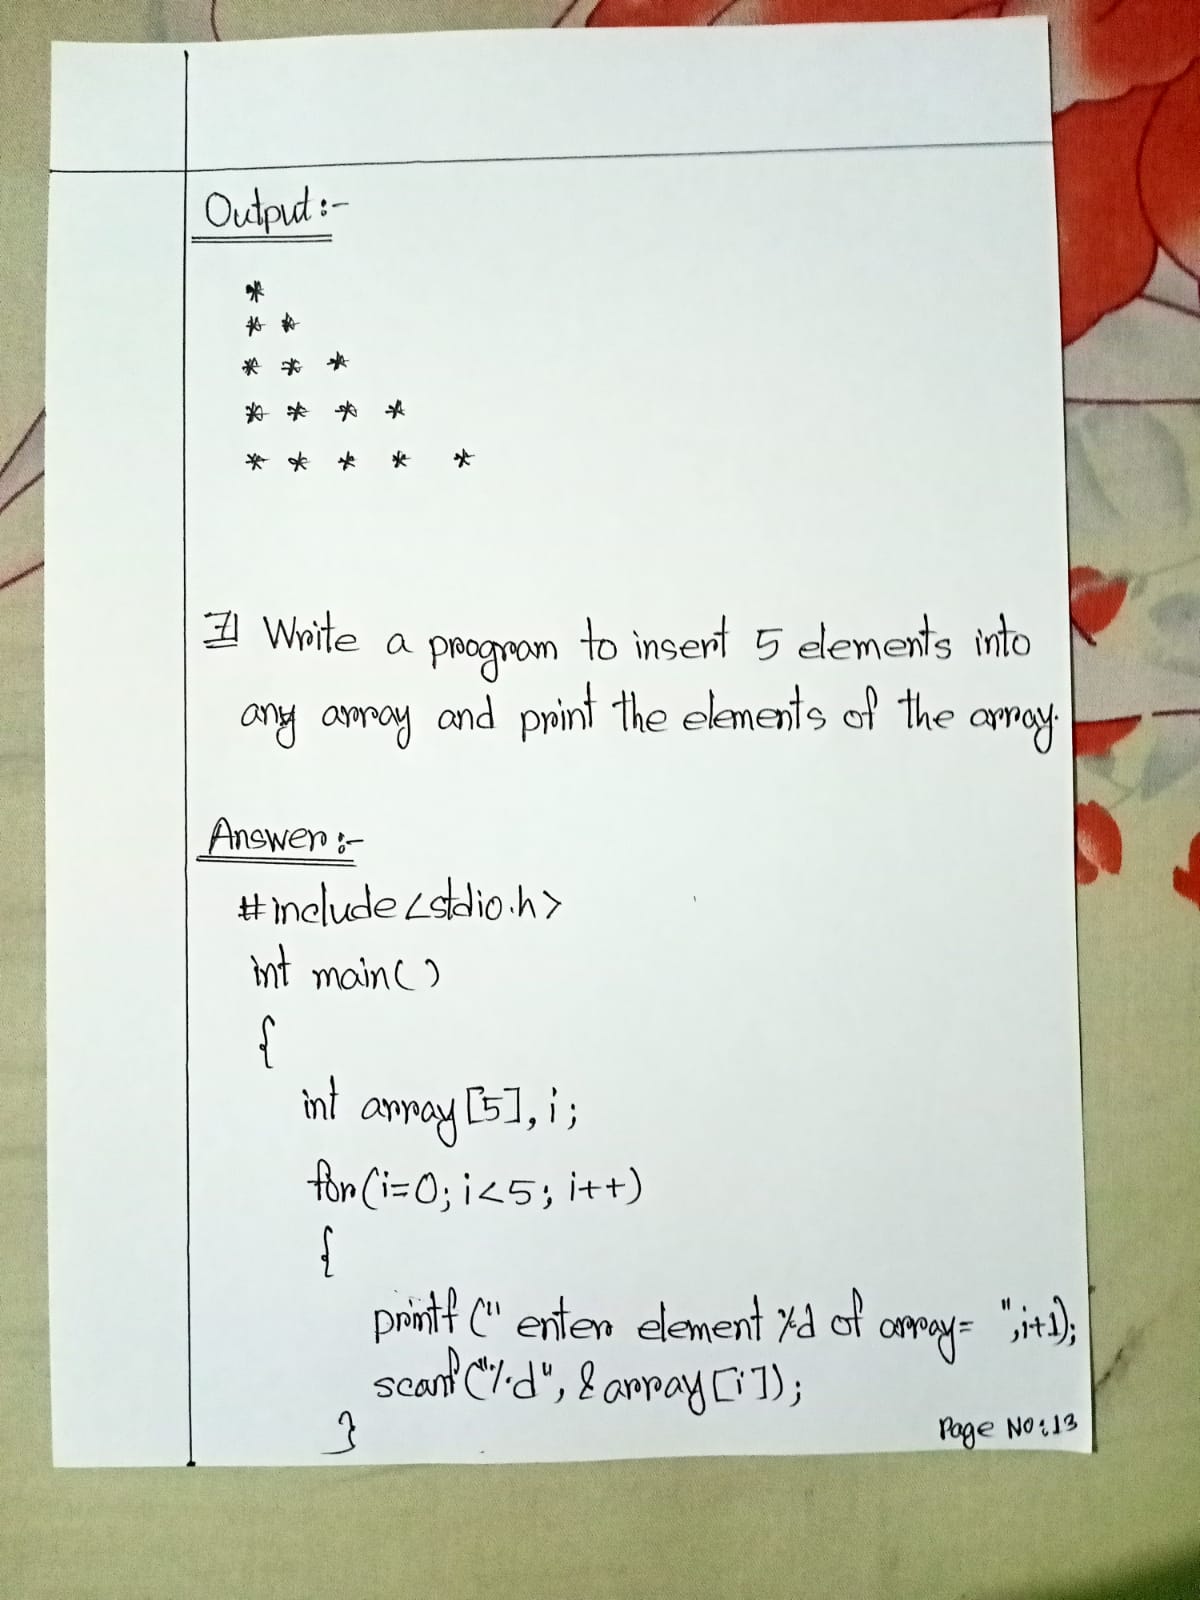 Output:-
*
* *
* * *
* * * *
* * * * *
7| Write a program to insert 5 elements into
any array and print the elements of the array.
Answer:-
#include<stdio.h>
int main()
{
int array[5], i;
for(i=0; i<5; i++)
{
printf(" enter element %d of array= ",i+1);
scanf("%d", &array[i]);
}
Page No:13